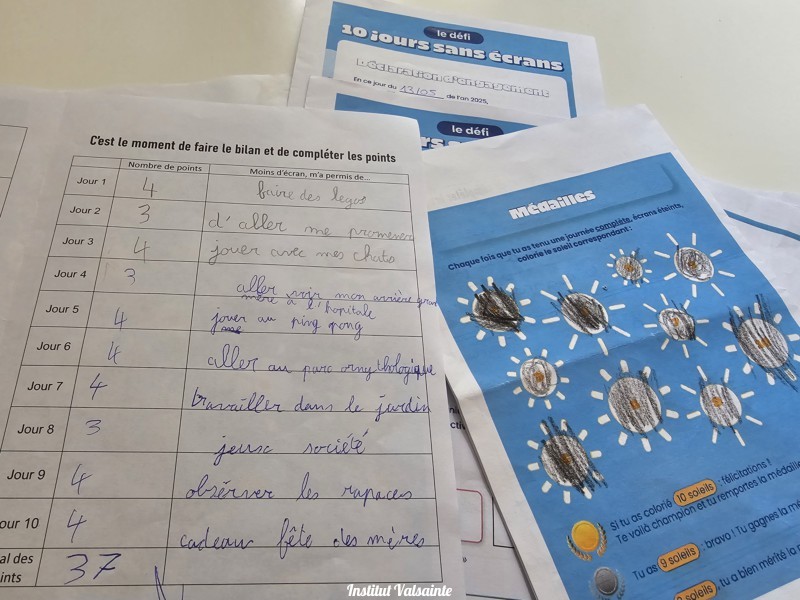 le défi
10 jours sans écrans
DÉCLARATION D'ENGAGEMENT
En ce jour du 13/05 de l'an 2025,
le défi
C'est le moment de faire le bilan et de compléter les points
Nombre de points
Moins d'écran, m'a permis de...
Jour 1 4 faire des legos
Jour 2 3 d'aller me promener
Jour 3 4 jouer avec mes chats
Jour 4 3 aller voir mon arrière gran
mère à l'hopitale
Jour 5 4 jouer au ping pong
Jour 6 4 aller au parc ornythologique
Jour 7 4 travailler dans le jardin
Jour 8 3 jeusc société
Jour 9 4 obsérver les rapaces
our 10 4 cadeau fête des mères
al des
ints 37
Médailles
Chaque fois que tu as tenu une journée complète, écrans éteints,
colorie le soleil correspondant :
Si tu as colorié 10 soleils : félicitations !
Te voilà champion et tu remportes la médaille
Tu as 9 soleils : bravo ! Tu gagnes la mé
soleils, tu a bien mérité la
Institut Valsainte